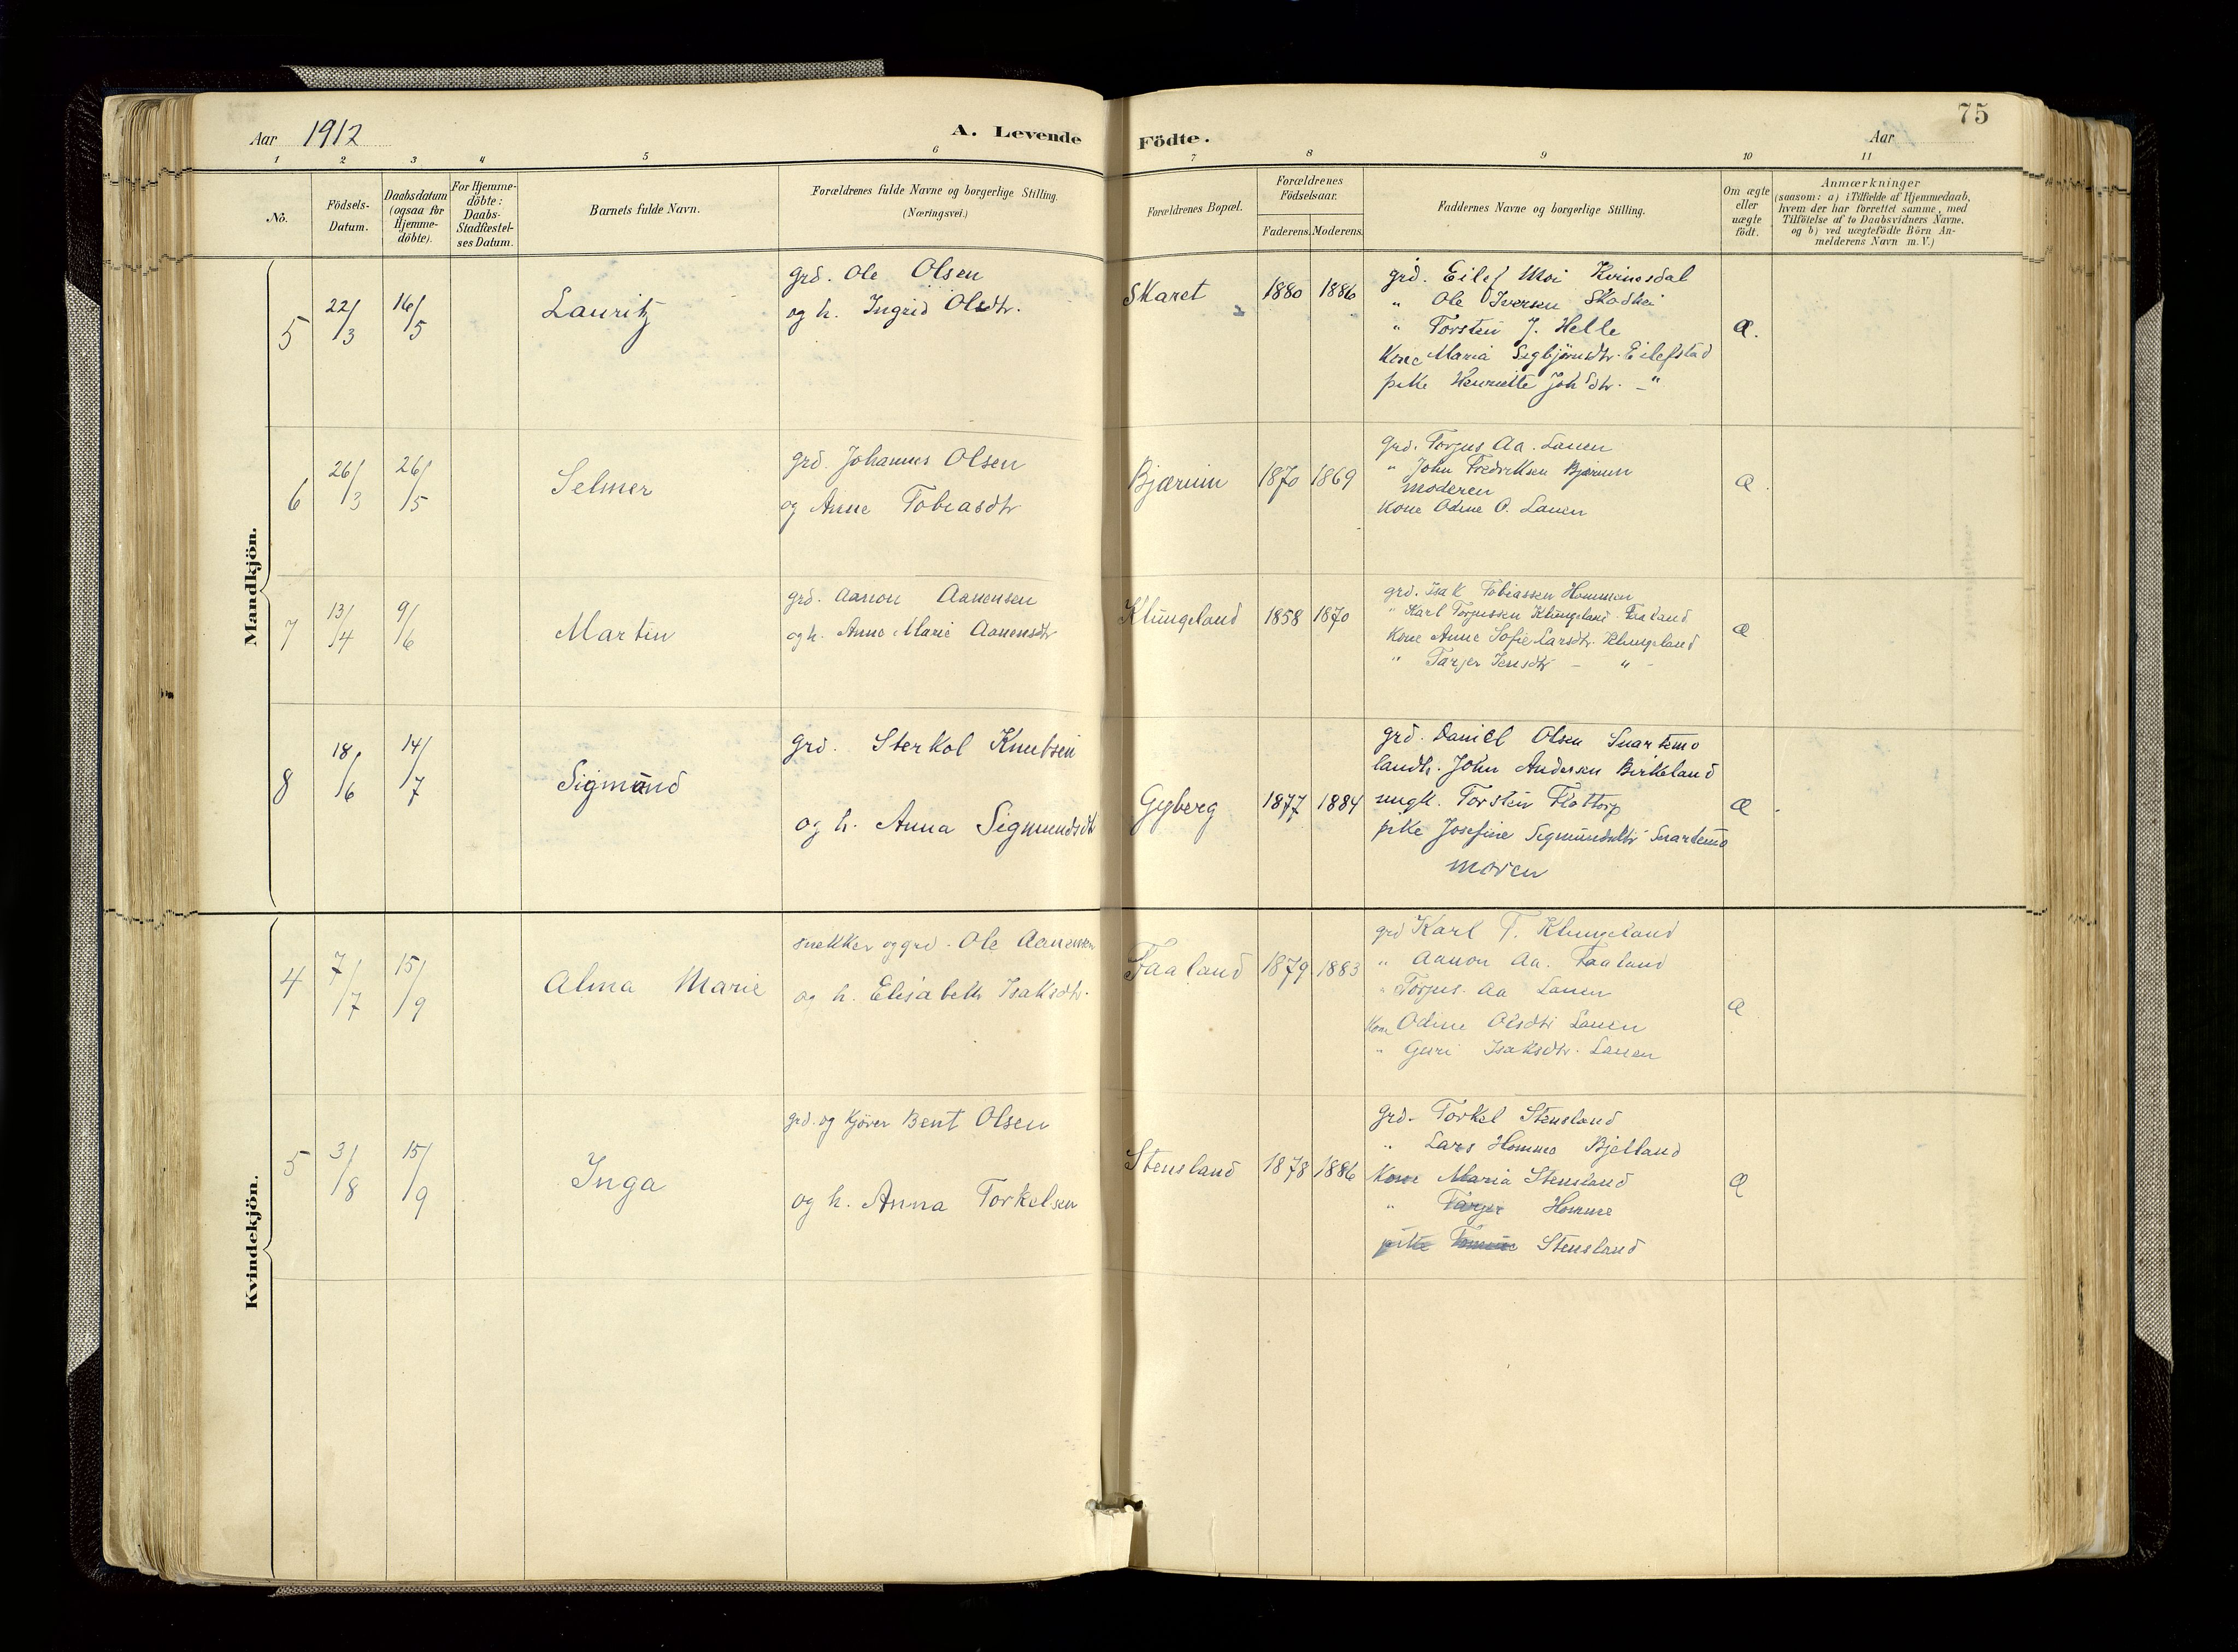 75
Aar 1912
A. Levende Födte.
Aar
1 2 3 4 5 6 7 8 9 10 11
No.
Födsels-Datum.
Daabsdatum (ogsaa for Hjemme-döbte).
For Hjemme-döbte: Daabs-Stadfæstel-ses Datum.
Barnets fulde Navn.
Forældrenes fulde Navne og borgerlige Stilling.
(Næringsvei.)
Forældrenes Bopæl.
Forældrenes Födselsaar.
Faderens. Moderens.
Faddernes Navne og borgerlige Stilling.
Om ægte eller uægte födt.
Anmærkninger
(saasom: a) i Tilfælde af Hjemmedaab,
hvem der har forrettet samme, med
Tilföielse af to Daabsvidners Navne.
og b) ved uægtefödte Börn An-
melderens Navn m. V.)
Mandkjön.
5 22/3 16/5 Lauritz
grd. Ole Olsen
og h. Ingrid Olsdtr.
Skaret 1880 1886
grd. Eilef Moi Kvinesdal
" Ole Iversen Skadhei
" Torsten J. Helle
Kone Maria Segbjörnsdtr. Eilefstad
pike Henriette Johsdtr. - "
Æ.
6 26/3 26/5 Selmer
grd. Johannes Olsen
og Anne Tobiasdtr
Bjærum 1870 1869
grd. Torjus Aa. Lauen
" John Fredriksen Bjærum
moderen
Kone Odine O. Lauen
Æ.
7 13/4 9/6 Martin
grd. Aanon Aanensen
og h. Anne Marie Aanensdtr
Klungeland 1858 1870
grd. Isak Tobiassen Hommen
" Karl Torjussen Klungeland Faaland
Kone Anne Sofie Larsdtr. Klungeland
" Tarjer Jensdtr - " -
Æ
8 18/6 14/7 Sigmund
grd. Sterkol Knutsen
og h. Anna Sigmundsdtr
Gyberg 1877 1884
grd. Daniel Olsen Snartemo
landh. John Andersen Birkeland
ungk. Torsten Flottorp
pike Josefine Segmundsdtr Snartemo
moren
Æ.
Kvindekjön.
4 7/7 15/9 Alma Marie
snekker og grd. Ole Aanensen
og h. Elisabeth Isaksdtr.
Faaland 1879 1883
grd Karl T. Klungeland
" Aanon Aa. Faaland
" Torjus Aa Lauen
Kone Odine Olsdtr Lauen
" Guri Isaksdtr. Lauen
Æ
5 3/8 15/9 Inga
grd. og Kjører Bent Olsen
og h. Anna Torkelsen
Stensland 1878 1886
Grd. Torkel Stensland
" Lars Homme Bjelland
Kone Maria Stensland
" Tarjer Homme
pike Stensland
Æ